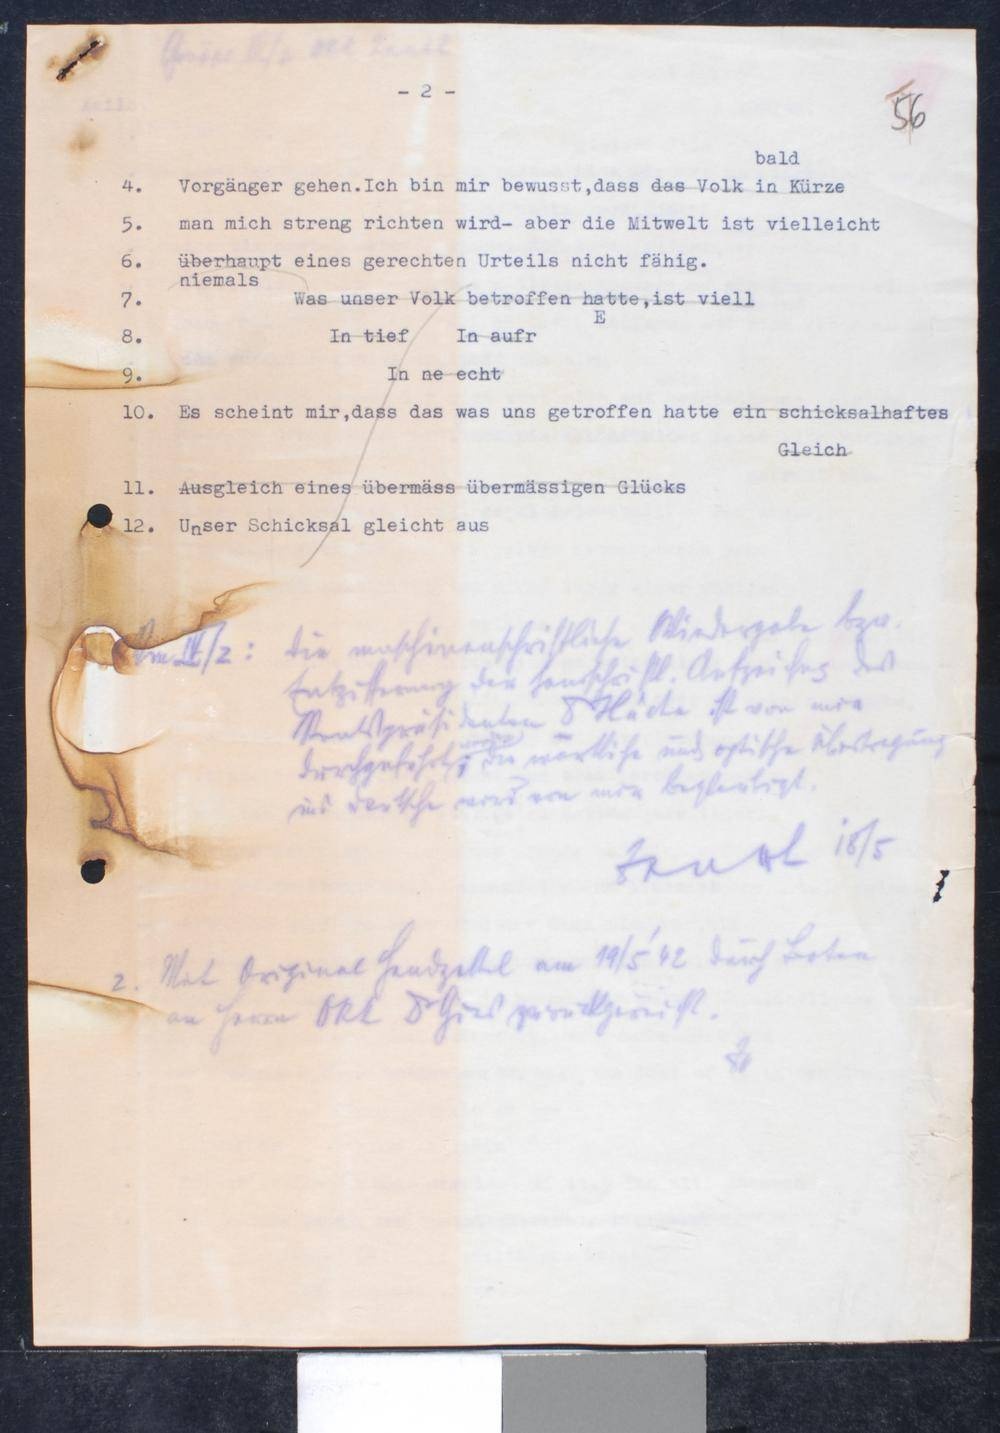 - 2 -
56
bald
4. Vorgänger gehen.Ich bin mir bewusst,dass das Volk in Kürze
5. man mich streng richten wird- aber die Mitwelt ist vielleicht
6. überhaupt eines gerechten Urteils nicht fähig.
niemals
7. Was unser Volk betroffen hatte,ist viell
E
8. In tief In aufr
9. In ne echt
10. Es scheint mir,dass das was uns getroffen hatte ein schicksalhaftes
Gleich
11. Ausgleich eines übermäss übermässigen Glücks
12. Unser Schicksal gleicht aus
IV/2: Die maschinenschriftliche Wiedergabe bzw.
Entzifferung der handschriftl. Aufzeichng des
Staatspräsidenten Dr Hácha ist von mir
durchgeführt, die wörtliche und optische Übertragung
ins Deutsche wird von mir beglaubigt.
18/5
2. Mit Original Handzettel am 19/5 42 durch Boten
an Herrn ORR Dr Gies zurückgereicht.